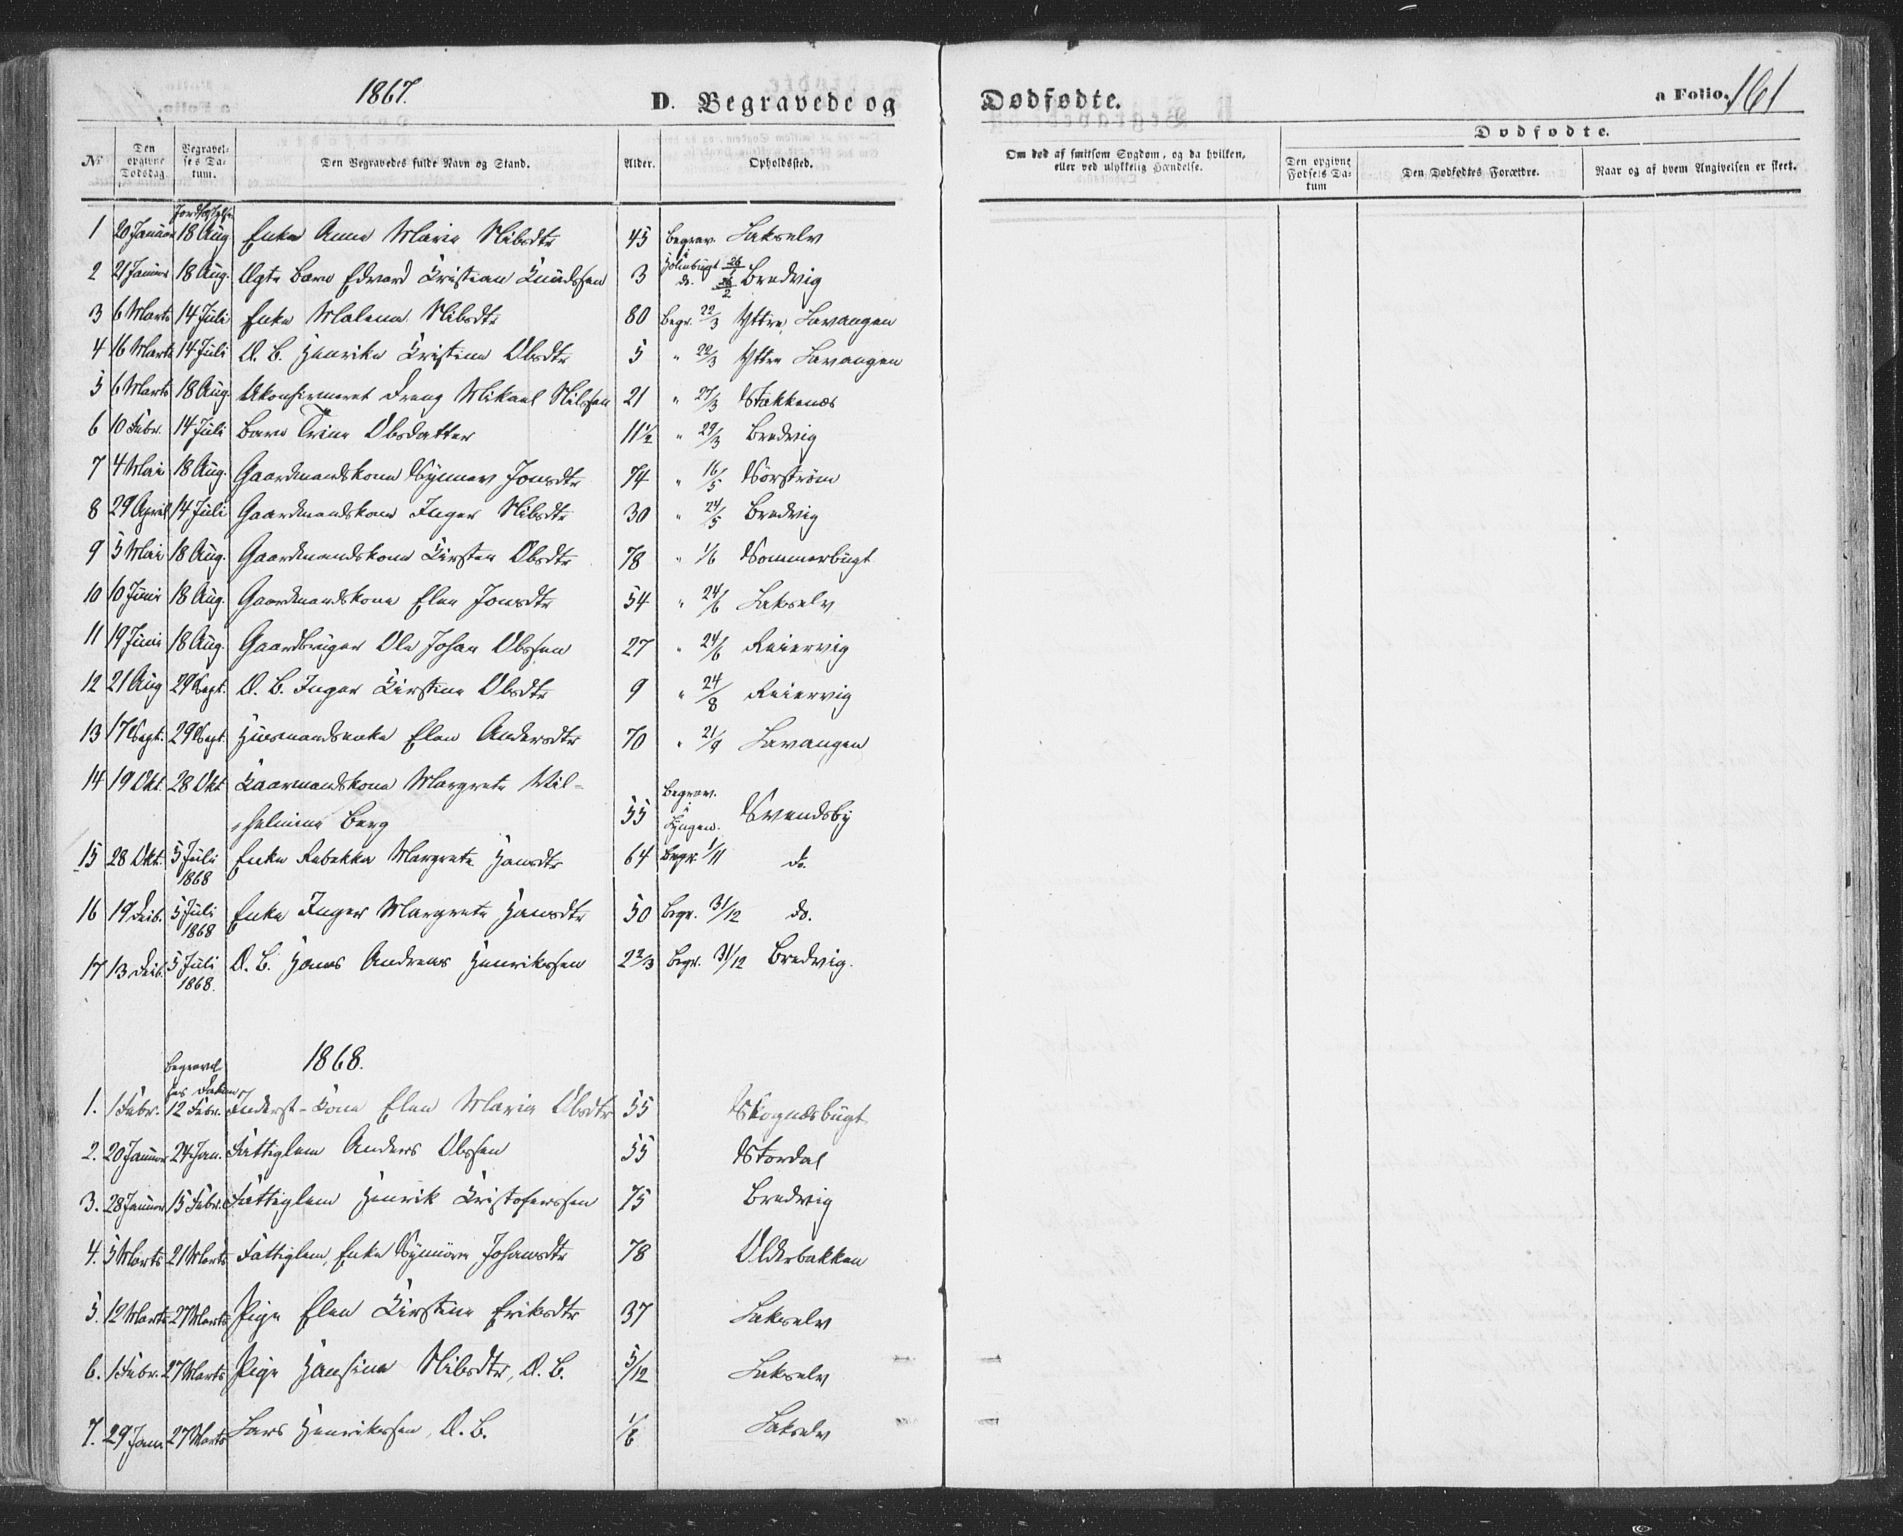 1867.
D. Begravede og
Dødfødte.
a Folio. 161
Dødfødte.
No
Den opgivne Dødsdag
Begravelses Datum.
Den Begravedes fulde Navn og Stand.
Alder.
Opholdssted.
Om død af smitsom Sygdom, og da hvilken, eller ved ulykkelig Hændelse.
Den opgivne Fødsels Datum
Den Dødfødtes Forældre.
Naar og af hvem Angivelsen er skeet.
1 20 Januar 18 Aug Enke Anne Marie Nilsdtr 45 begrav. i Holmbugt 26/1 Lakselv
2 21 Januar 18 Aug. Ægte Barn Edvard Kristian Knudssen 3 do. 26/2 Bredvig
3 6 Marts 14 Juli Enke Malena Nilsdtr 80 Begr. 22/3 Yttre Lavangen
4 16 Marts 14 Juli Æ. B. Henrika Kristine Olsdtr 5 " 22/3 Yttre Lavangen
5 6 Marts 18 Aug. Ukonfirmeret Dreng Mikael Nilssen 21 " 27/3 Stakkenæs
6 10 Febr. 14 Juli Barn Trine Olsdatter 11 1/2 " 29/3 Bredvig
7 4 Mai 18 Aug. Gaardmandskone Synnev Jonsdtr 74 " 16/5 Sørstrøm
8 29 April 14 Juli Gaardmandskone Inger Nilsdtr 30 " 24/5 Bredvig
9 5 Mai 18 Aug. Gaardmandskone Kirsten Olsdtr 78 " 1/6 Sommerbugt
10 10 Juni 18 Aug. Gaardmandskone Elen Jonsdtr 54 " 24/6 Lakselv
11 19 Juni 18 Aug. Gaardbruger Ole Johan Olssen 27 " 24/6 Reiervig
12 21 Aug 29 Sept. Æ. B. Inger Kirstine Olsdtr 9 " 24/8 Reiervig
13 17 Sept. 29 Sept. Husmandsenke Elen Andersdtr 70 " 21/9 Lavangen
14 19 Okt 28 Okt Kaarmandskone Margrete Vil-
helmine Berg 55 begrav. i Lyngen. Svendsby
15 28 Okt. 5 Juli 1868 Enke Rebekka Margrete Hansdtr 64 Begr. 1/11 do.
16 19 Deb. 5 Juli 1868 Enke Inger Margrete Hansdtr 50 Begr. 31/12 do.
17 13 Deb. 5 Juli 1868. Æ. B. Hans Andreas Henrikssen 2 2/3 Begr. 31/12 Bredvig.
1868.
Begravelses Datum
1. 1 Febr. 12 Febr. Inderst-Kone Elen Marie Olsdtr 55 Skognæsbugt
2. 20 Januar 24 Jan. Fattiglem Anders Olssen 55 Stordal
3. 28 Januar 15 Febr. Fattiglem Henrik Kristofersen 75 Bredvig
4. 5 Marts 21 Marts Fattiglem, Enke Synnøve Johansdtr 78 Olderbakken
5. 12 Marts 27 Marts Pige Elen Kirstine Eriksdtr 37 Lakselv
6. 1 Febr. 27 Marts Pige Hansine Nilsdtr, Æ. B. 5/12 Lakselv
7. 29 Jan. 27 Marts Lars Henrikssen, Æ. B. 1/6 Lakselv